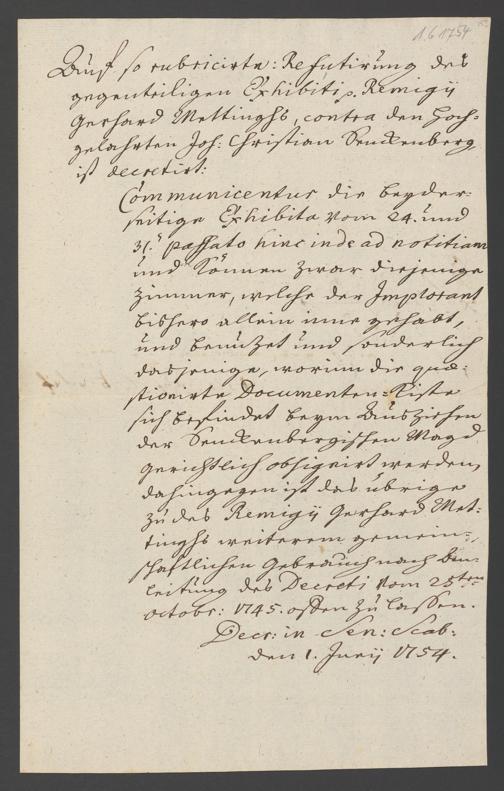 1.6.1754
Auf so rubricirte: Refutirung des
gegenteiligen Exhibiti p. Remigij
Gerhard Mettinghs, contra den Hoch-
gelahrten Joh: Christian Senckenberg,
ist decretirt:
Communicentur die beyder-
seitige Exhibita vom 24. und
31. passato hinc inde ad notitiam
und können zwar diejenige
Zimmer, welche der Implorant
bishero allein inne gehabt,
und benutzet und sonderlich
dasjenige, worinn die quae-
stionirte Documenten-Kiste
sich befindet beym Ausziehen
der Senckenbergischen Magd
gerichtlich obsignirt werden,
dahingegen ist das übrige
zu des Remigij Gerhard Met-
tinghs weiterem gemein-
schafftlichen Gebrauch nach An-
leitung des Decreti vom 25ten
octobr: 1745. offen zu lassen.
Decr: in Sen: Scab:
den 1. Junij 1754.